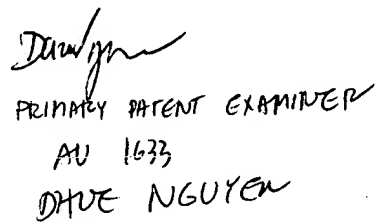 PRIMARY PATENT EXAMINER
AU 1633
DAVE NGUYEN